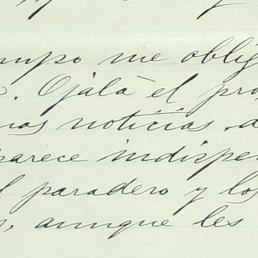 mpo me oblig
Ojalá el pro
nas noticias, d
parece indispe
l paradero y los
, aunque les